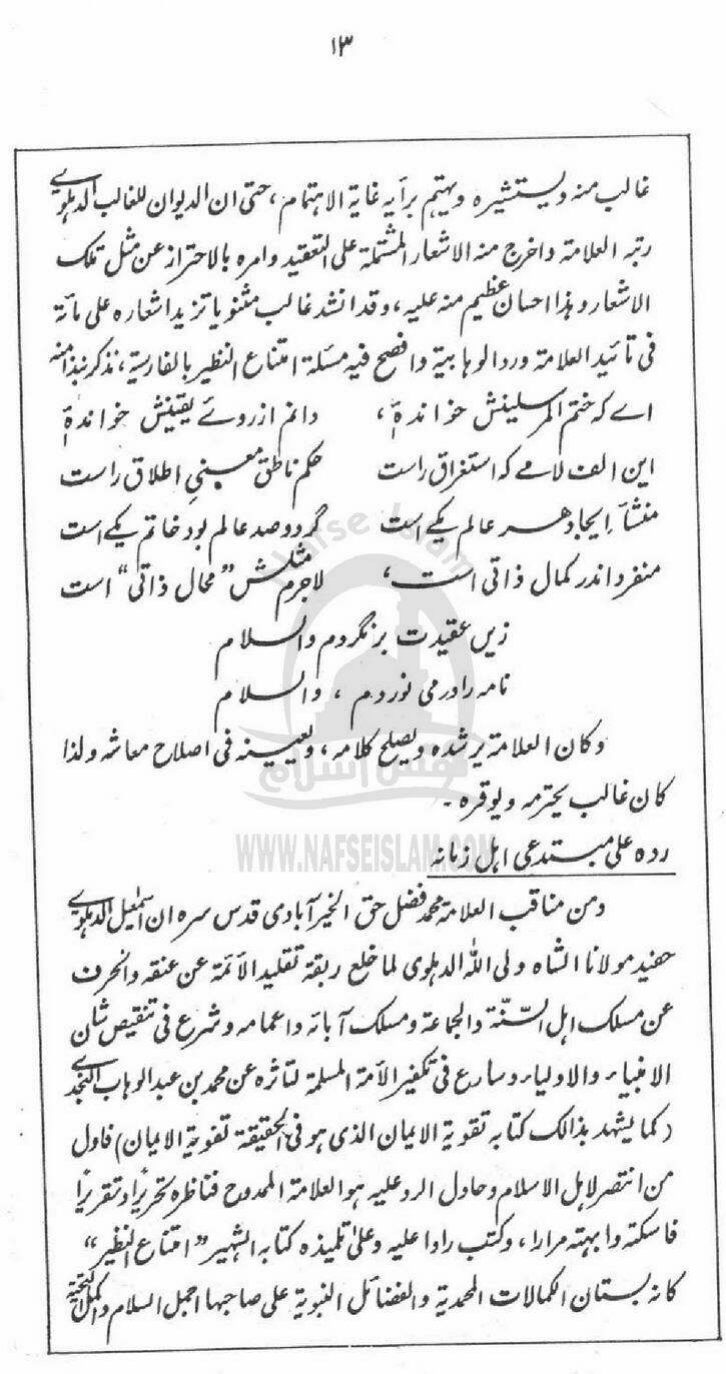 ۱۳
غالب منه ويستشيره ويهتم برأيه غاية الاهتمام، حتى ان الديوان للغالب الدهلوي
رتبه العلامة واخرج منه الاشعار المشتملة على التعقيد وامره بالاحتراز عن مثل تلك
الاشعار وهذا احسان عظيم منه عليه، وقد انشد غالب مثنويا تزيد اشعاره على مائة
فى تائيد العلامة ورد الوهابية وافصح فيه مسئلة امتناع النظير بالفارسية، نذكر نبذا منه
اے کہ ختم المرسلینش خواندۂ، دانم از روے یقینش خواندۂ
این الف لامے کہ استغراق راست حکم ناطق معنیِ اطلاق راست
منشأِ ایجاد ہر عالم یکے است گر دو صد عالم بود خاتم یکے است
منفرد اندر کمال ذاتی است، لاجرم مثلش "محال ذاتی" است
زیں عقیدت برنگردم والسلام
نامہ را درمی نوردم، والسلام
وكان العلامة يرشده ويصلح كلامه، ويعينه فى اصلاح معاشه ولذا
كان غالب يحترمه ويوقره۔
رده على مبتدعى اهل زمانه
ومن مناقب العلامة محمد فضل حق الخيرآبادى قدس سره ان اسمٰعيل الدهلوي
حفيد مولانا الشاه ولى الله الدهلوى لما خلع ربقة تقليد الأئمة عن عنقه وانحرف
عن مسلك اهل السّنّة والجماعة ومسلك آبائه واعمامه وشرع فى تنقيص شان
الانبياء والاولياء وسارع فى تكفير الأمة المسلمة لتاثره عن محمد بن عبد الوهاب النجدي
(كما يشهد بذالك كتابه تقوية الايمان الذى هو فى الحقيقة تفوية الايمان) فاول
من انتصر لاهل الاسلام وحاول الرد عليه هو العلامة الممدوح فناظره تحريرًا وتقريرًا
فاسكته وابهته مرارا، وكتب رادا عليه وعلىٰ تلميذه كتابه الشهير "امتناع النظير"
كانه بستان الكمالات المحمدية والفضائل النبوية على صاحبها اجمل السلام واكمل التحية
Nafse Islam
نفس اسلام
WWW.NAFSEISLAM.COM